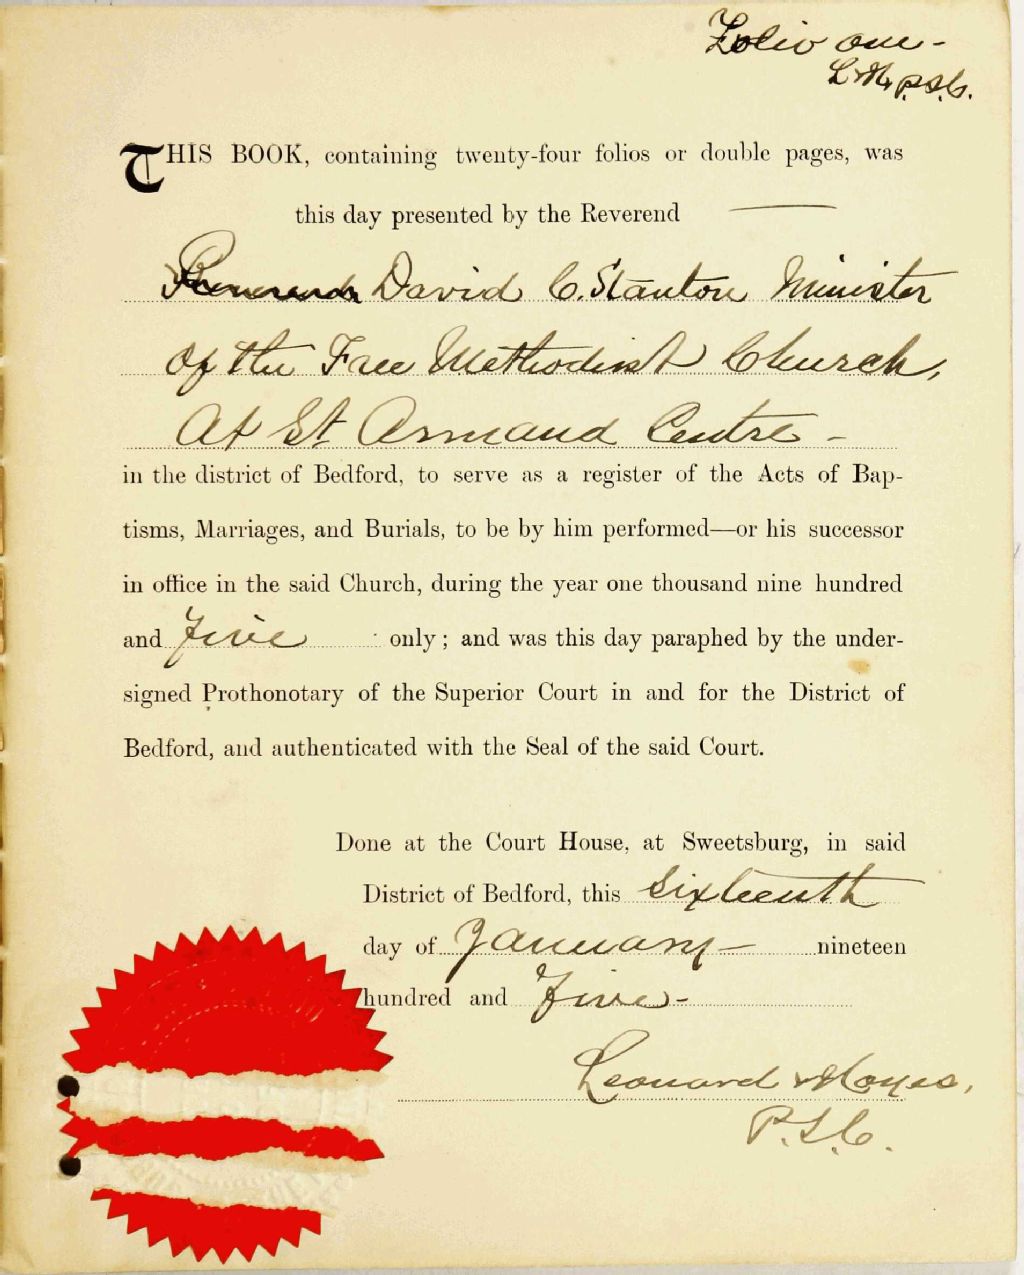 Folio one -
L & N, P.S.C.
THIS BOOK, containing twenty-four folios or double pages, was
this day presented by the Reverend
David C. Stanton Minister
of the Free Methodist Church,
At St Armand Centre -
in the district of Bedford, to serve as a register of the Acts of Bap-
tisms, Marriages, and Burials, to be by him performed—or his successor
in office in the said Church, during the year one thousand nine hundred
and Five only; and was this day paraphed by the under-
signed Prothonotary of the Superior Court in and for the District of
Bedford, and authenticated with the Seal of the said Court.
Done at the Court House, at Sweetsburg, in said
District of Bedford, this Sixteenth
day of January - nineteen
hundred and Five -
Leonard & Noyes,
P.S.C.